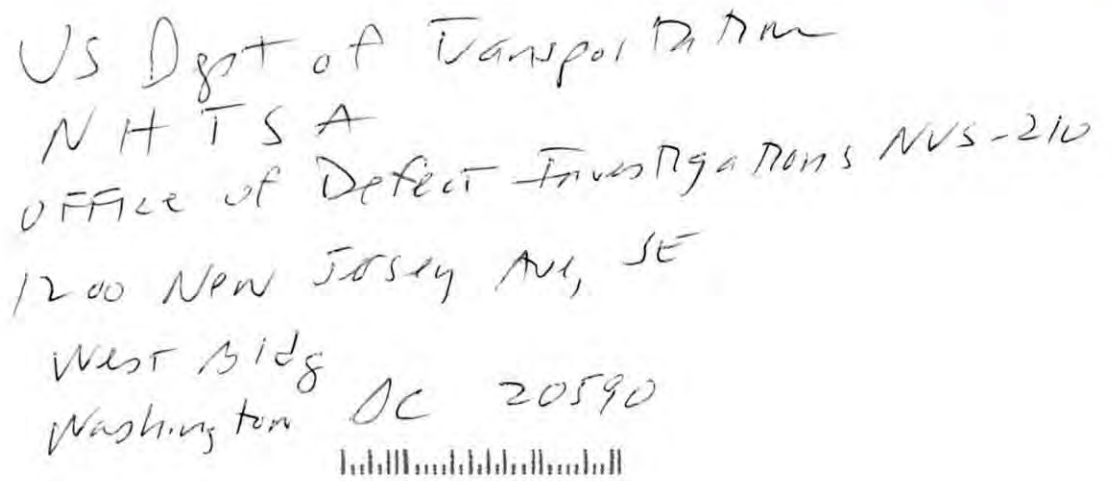 US Dept of Transportation
NHTSA
Office of Defect Investigations NVS-210
1200 New Jersey Ave, SE
West Bldg
Washington DC 20590